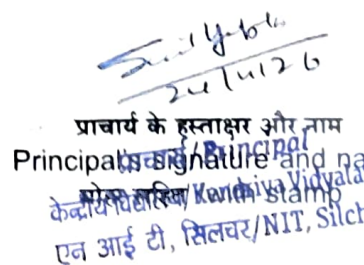 24/11/26
प्राचार्य के हस्ताक्षर और नाम
Principal's signature and na
प्राचार्य/Principal
with stamp
केन्द्रीय विद्यालय/Kendriya Vidyala
एन आई टी, सिलचर/NIT, Silch